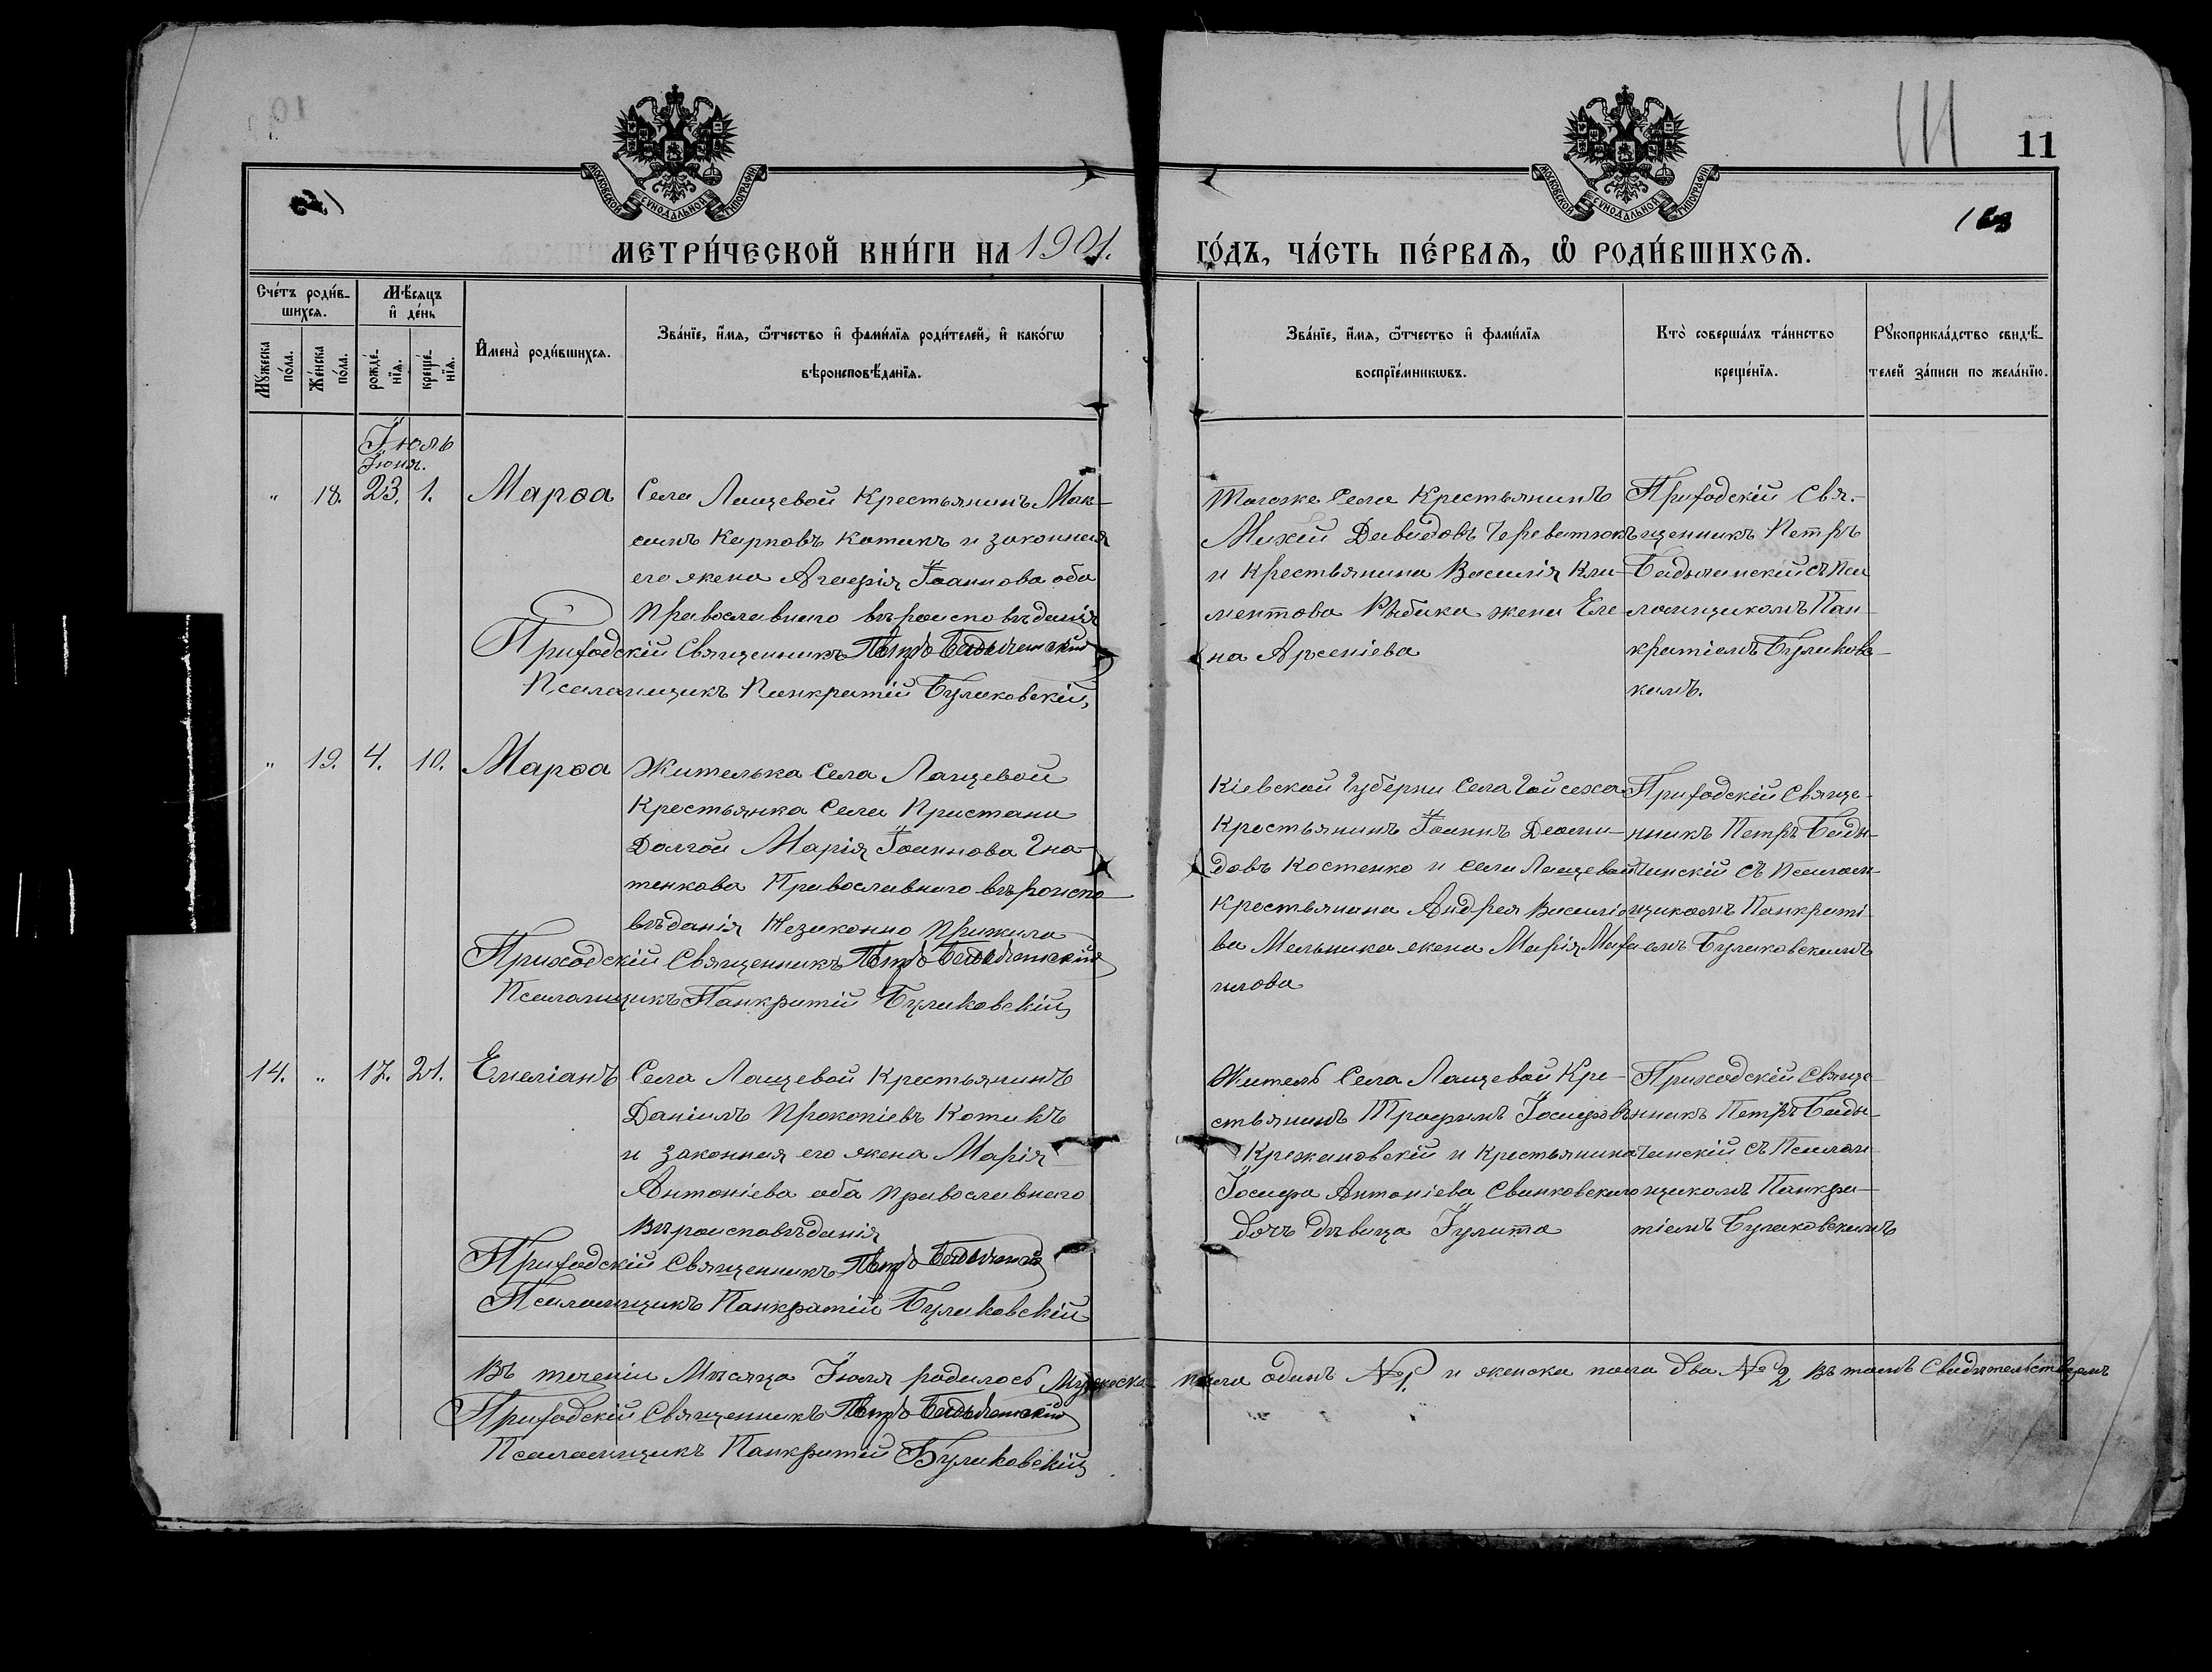 11
МОСКОВСКОЙ СУНОДАЛЬНОЙ ТИПОГРАФІИ
МОСКОВСКОЙ СУНОДАЛЬНОЙ ТИПОГРАФІИ
МЕТРИ́ЧЕСКОЙ КНИ́ГИ НА 1901.
ГО́ДЪ, ЧА́СТЬ ПЕ́РВАѦ, Ѡ҆ РОДИ́ВШИХСѦ.
Сче́тъ роди́в-
шихсѧ.
Мѣ́сѧцъ
и҆ де́нь
Мꙋ́жеска
по́ла.
Же́нска
по́ла.
рожде́-
нїѧ.
креще́-
нїѧ.
И҆мена̀ роди́вшихсѧ.
Зва́нїе, и҆́мѧ, ѻ҆́тчество и҆ фами́лїѧ роди́телей, и҆ како́гѡ
вѣроисповѣ́данїѧ.
Зва́нїе, и҆́мѧ, ѻ҆́тчество и҆ фами́лїѧ
воспрїе́мникѡвъ.
Кто̀ соверша́лъ та́инство
креще́нїѧ.
Рꙋкоприкла́дство свидѣ́-
телей за́писи по жела́нїю.
Іюль
Іюня.
" 18. 23. 1. Марѳа
Села Лащевой Крестьянинъ Мак-
симъ Карповъ Котикъ и законная
его жена Агафія Іоаннова оба
Православнаго вѣроисповѣданія
Приходскій Священникъ Петръ
Псаломщикъ Панкратій Буликовскій
Тогоже Села Крестьянинъ
Михей Давидовъ Череватюкъ
и Крестьянина Василія Кли-
ментова Рыбака жена Еле-
на Арсеніева
Приходскій Свя-
щенникъ Петръ
съ Пса
ломщикомъ Пан-
кратіемъ Буликовс-
кимъ.
" 19. 4. 10. Марѳа
Жителька Села Лащевой
Крестьянка Села Пристани
Долгой Марія Іоаннова Гна-
тенкова Православнаго вѣроиспо-
вѣданія Незаконно Прижила
Приходскій Священникъ Петръ
Псаломщикъ Панкратій Буликовскій
Кіевской Губерніи Села
Крестьянинъ Іоаннъ Деоми-
довъ Костенко и села Лащевой
Крестьянина Андрея Василіе
ва Мельника жена Марія Миха
илова
Приходскій Свяще-
нникъ Петръ
съ Псалом-
щикомъ Панкраті-
емъ Буликовскимъ
14. " 17. 21. Емеліанъ
Села Лащевой Крестьянинъ
Даніилъ Прокопіевъ Котикъ
и законная его жена Марія
Антоніева оба Православнаго
Вѣроисповѣданія
Приходскій Священникъ Петръ
Псаломщикъ Панкратій Буликовскій
Житель Села Лащевой Кре-
стьянинъ Трофимъ Іосифовъ
Крижановскій и Крестьянина
Іосифа Антоніева Свинковскаго
дочь дѣвица Іулита
Приходскій Свяще-
нникъ Петръ
съ Псалом-
щикомъ Панкра-
тіемъ Буликовскимъ
Въ теченіи Мѣсяца Іюля родилось Мужеска пола одинъ № 1. и женска пола два № 2 Въ томъ Свидѣтельствуемъ
Приходскій Священникъ Петръ
Псаломщикъ Панкратій Буликовскій